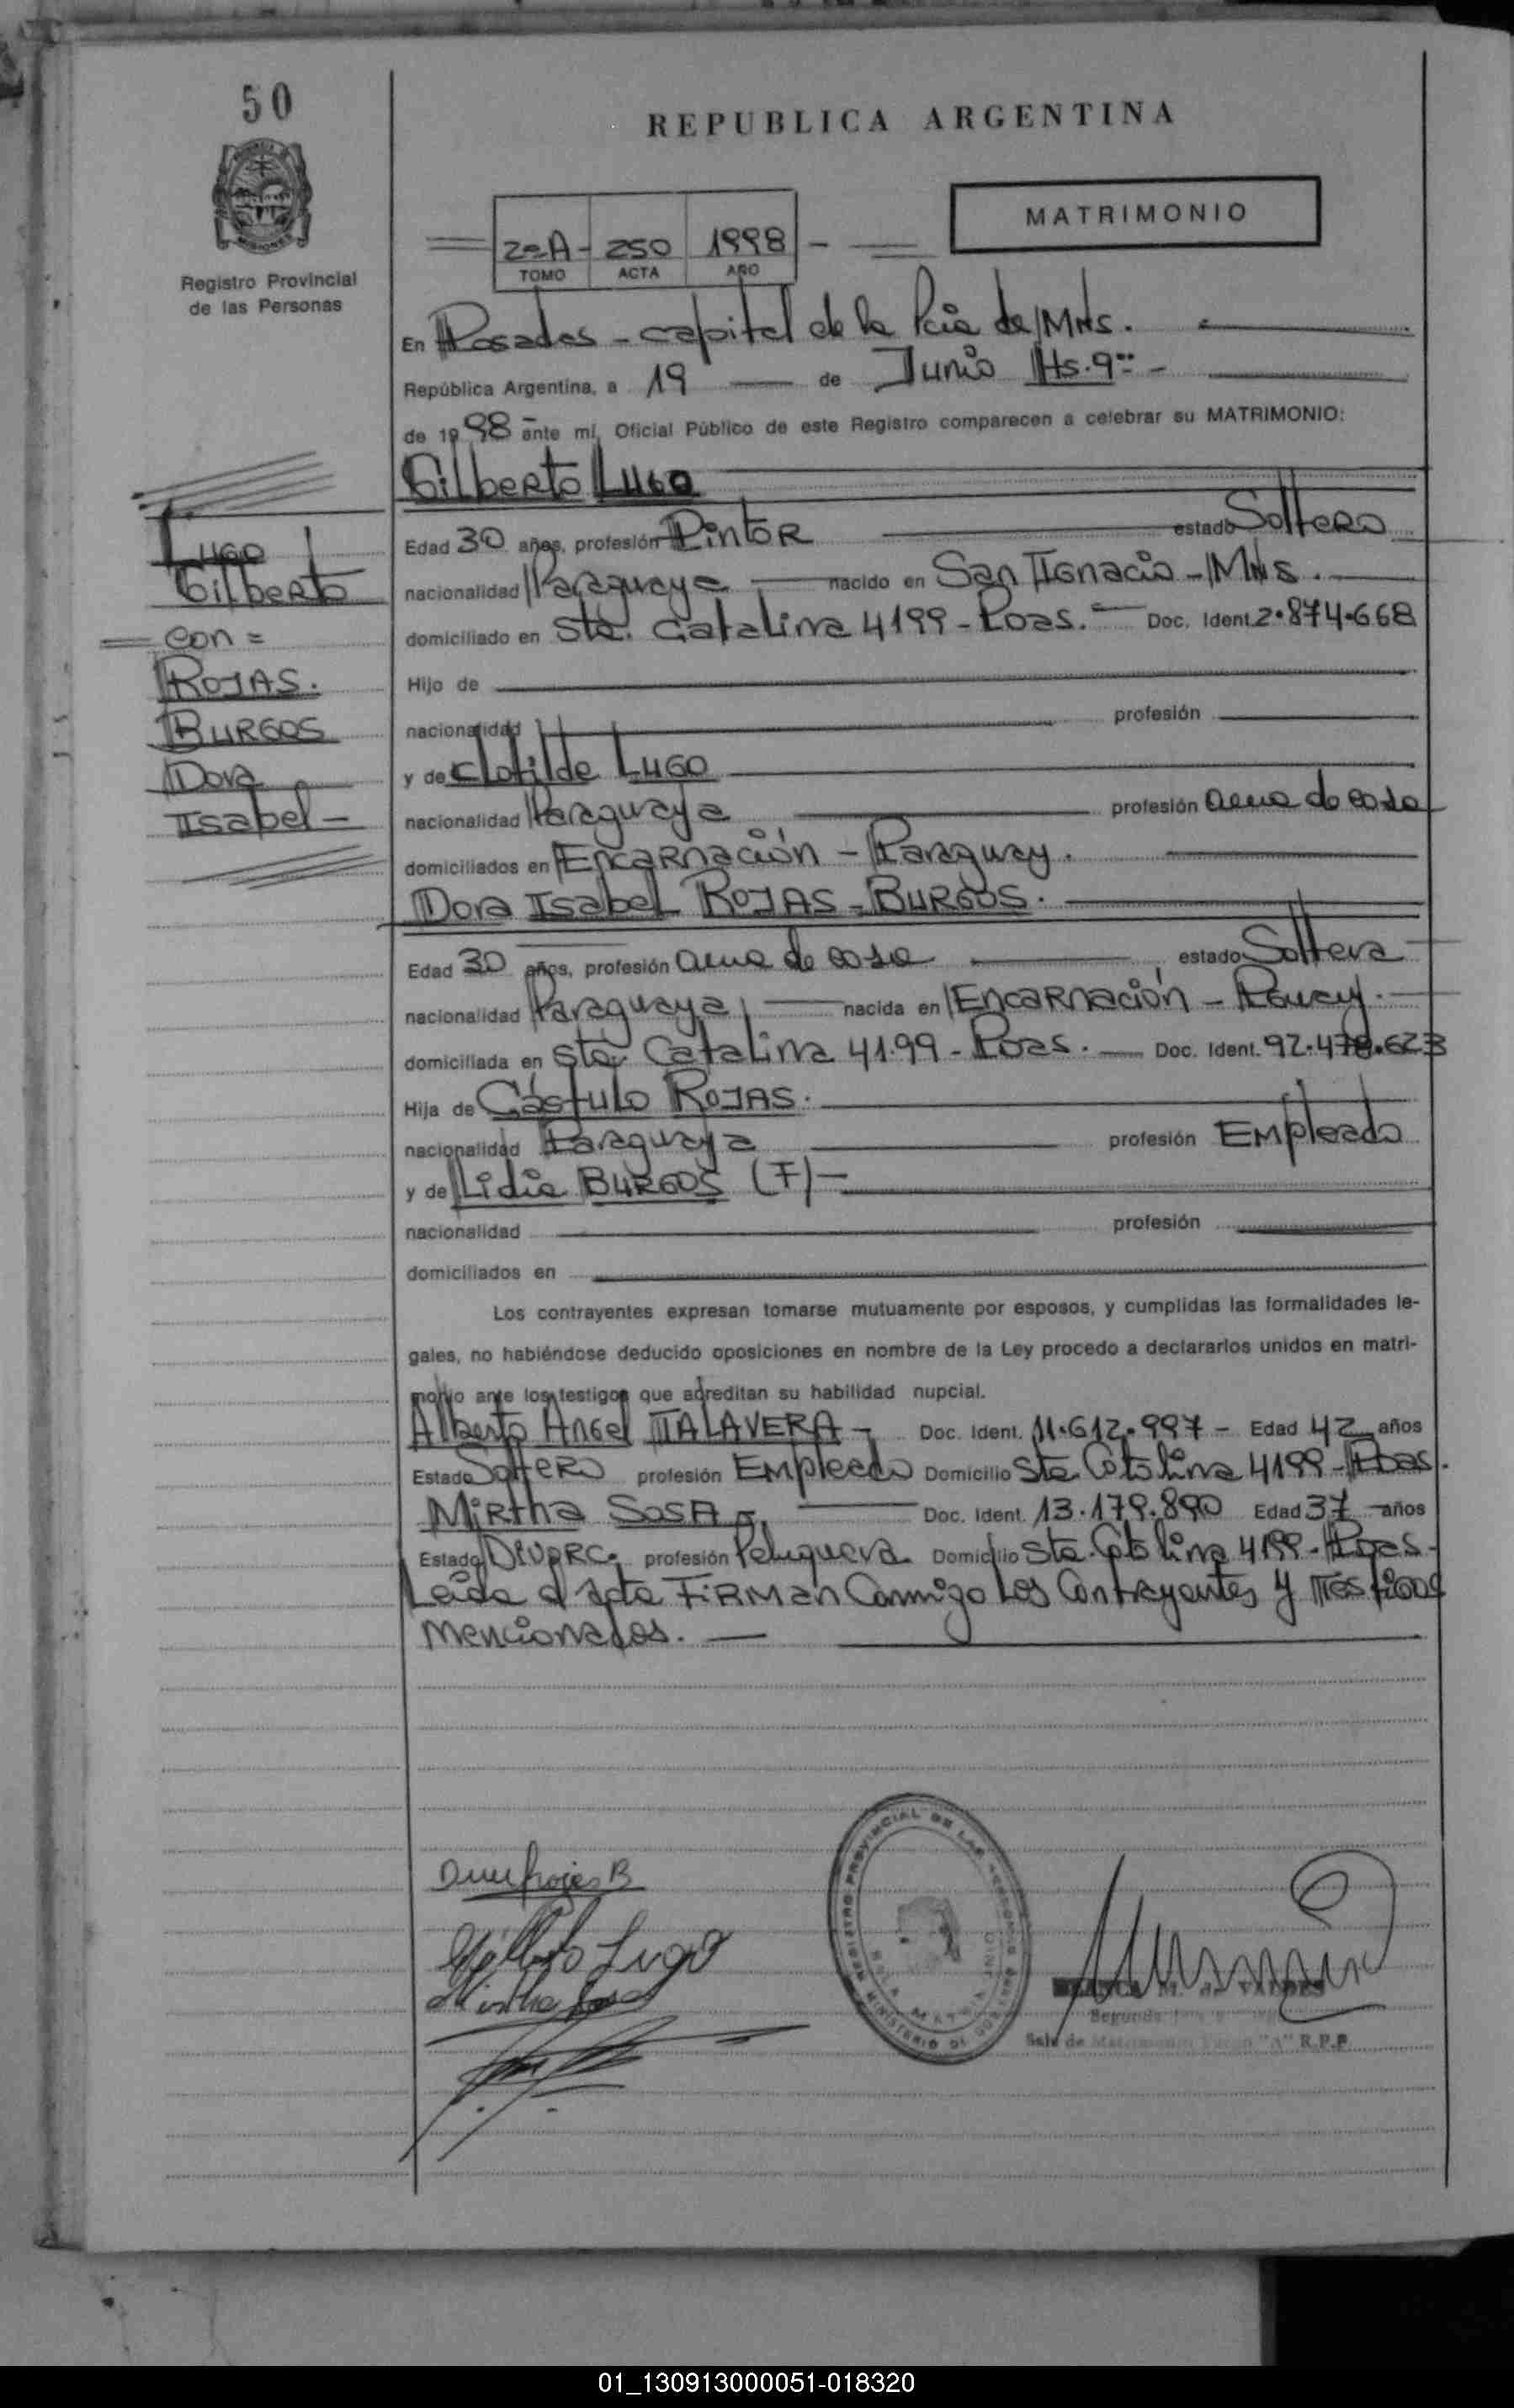 50
REPUBLICA ARGENTINA
MATRIMONIO
2º A - 250 1998
TOMO ACTA AÑO
Registro Provincial
de las Personas
En Posadas - capital de la Pcia de Mnes.
República Argentina, a 19 de Junio Hs. 9
de 1998 ante mí, Oficial Público de este Registro comparecen a celebrar su MATRIMONIO:
Gilberto LUGO
Edad 30 años, profesión Pintor estado Soltero
nacionalidad Paraguaya nacido en San Ignacio - Mns.
domiciliado en Sta. Catalina 4199 - Poas. Doc. Ident. 2.874.668
Hijo de
nacionalidad profesión
y de Clotilde LUGO
nacionalidad Paraguaya profesión ama de casa
domiciliados en Encarnación - Paraguay.
Dora Isabel ROJAS - BURGOS.
Edad 30 años, profesión ama de casa estado Soltera
nacionalidad Paraguaya nacida en Encarnación - Pguay.
domiciliada en Sta. Catalina 4199 - Poas. Doc. Ident. 92.478.623
Hija de Cástulo ROJAS.
nacionalidad Paraguaya profesión Empleado
y de Lidia BURGOS (F)
nacionalidad profesión
domiciliados en
Los contrayentes expresan tomarse mutuamente por esposos, y cumplidas las formalidades le-
gales, no habiéndose deducido oposiciones en nombre de la Ley procedo a declararlos unidos en matri-
monio ante los testigos que acreditan su habilidad nupcial.
Alberto Angel TALAVERA - Doc. Ident. 11.612.997 - Edad 42 años
Estado Soltero profesión Empleado Domicilio Sta. Catalina 4199 - Poas.
Mirtha SOSA - Doc. Ident. 13.179.890 Edad 37 años
Estado Divorc. profesión Peluquera Domicilio Sta. Catalina 4199 - Poas -
Leída el acta FIRMAN Conmigo Los Contrayentes y Testigos
mencionados.
LUGO
Gilberto
= con =
ROJAS.
BURGOS
Dora
Isabel -
Rojas B
Gilberto Lugo
Mirtha Sosa
REGISTRO PROVINCIAL DE LAS PERSONAS
M. de VALDES
Sala de Matrimonio "A" R.P.P.
01_130913000051-018320